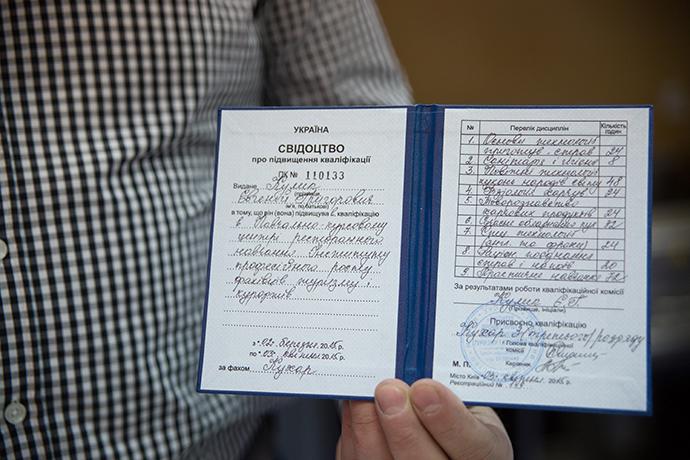 УКРАЇНА
СВІДОЦТВО
про підвищення кваліфікації
ПК № 110133
Видане Кулик
(прізвище,
Євгеній Григорович
ім'я, по батькові)
в тому, що він (вона) підвищував кваліфікацію
в Навчально-курсовому
центрі ресторанного
навчання Інституту
професійного росту
фахівців туризму і
курортів
з «02» березня 2015р.
по «03» квітня 2015р.
за фахом Кухар
№ Перелік дисциплін Кількість годин
1 Основи технології
приготув. страв 24
2 Санітарія і гігієна 8
3 Новітні технології
кухні народів світу 48
4
24
5 Товарознавство
харчових продуктів 24
6 Сучасне обладнання 32
7 Суч. технології
24
8
страв і напоїв 20
9 Практичне навчання 72
За результатами роботи кваліфікаційної комісії
Кулик Є.Г.
(Прізвище, ініціали)
Присвоєно кваліфікацію
Кухар 3(третього) розряду
Голова кваліфікаційної
комісії
М. П. Керівник
Місто Київ «03» квітня 2015р
Реєстраційний №